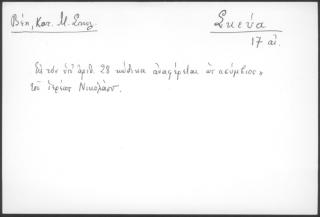 Βέη, Κατ. Μ. Σπηλ.
Σκεύα
17 αἰ.
τὸν ὑπ' ἀριθ. 28 κώδικα ἀναφέρεται ὡς «σύμβιος»
τοῦ ἱερέως Νικολάου.